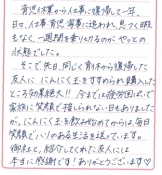 育児休業から仕事に復帰して一年、
日々、仕事、育児、家事に追われ、息つく暇
もなく一週間を乗りきるのが、やっとの
状態でした。
そこで先日、同じく育休から復帰した
友人に にんにく玉をすすめられ購入した
ところ効果絶大!! 今までは疲労困ぱいで
家族に笑顔で接しられない日もありました
が、にんにく玉を飲み始めてからは、毎日
笑顔でいりのある生活を送っています。
御社と、紹介してくれた友人には
本当に感謝です!ありがとうございます♡